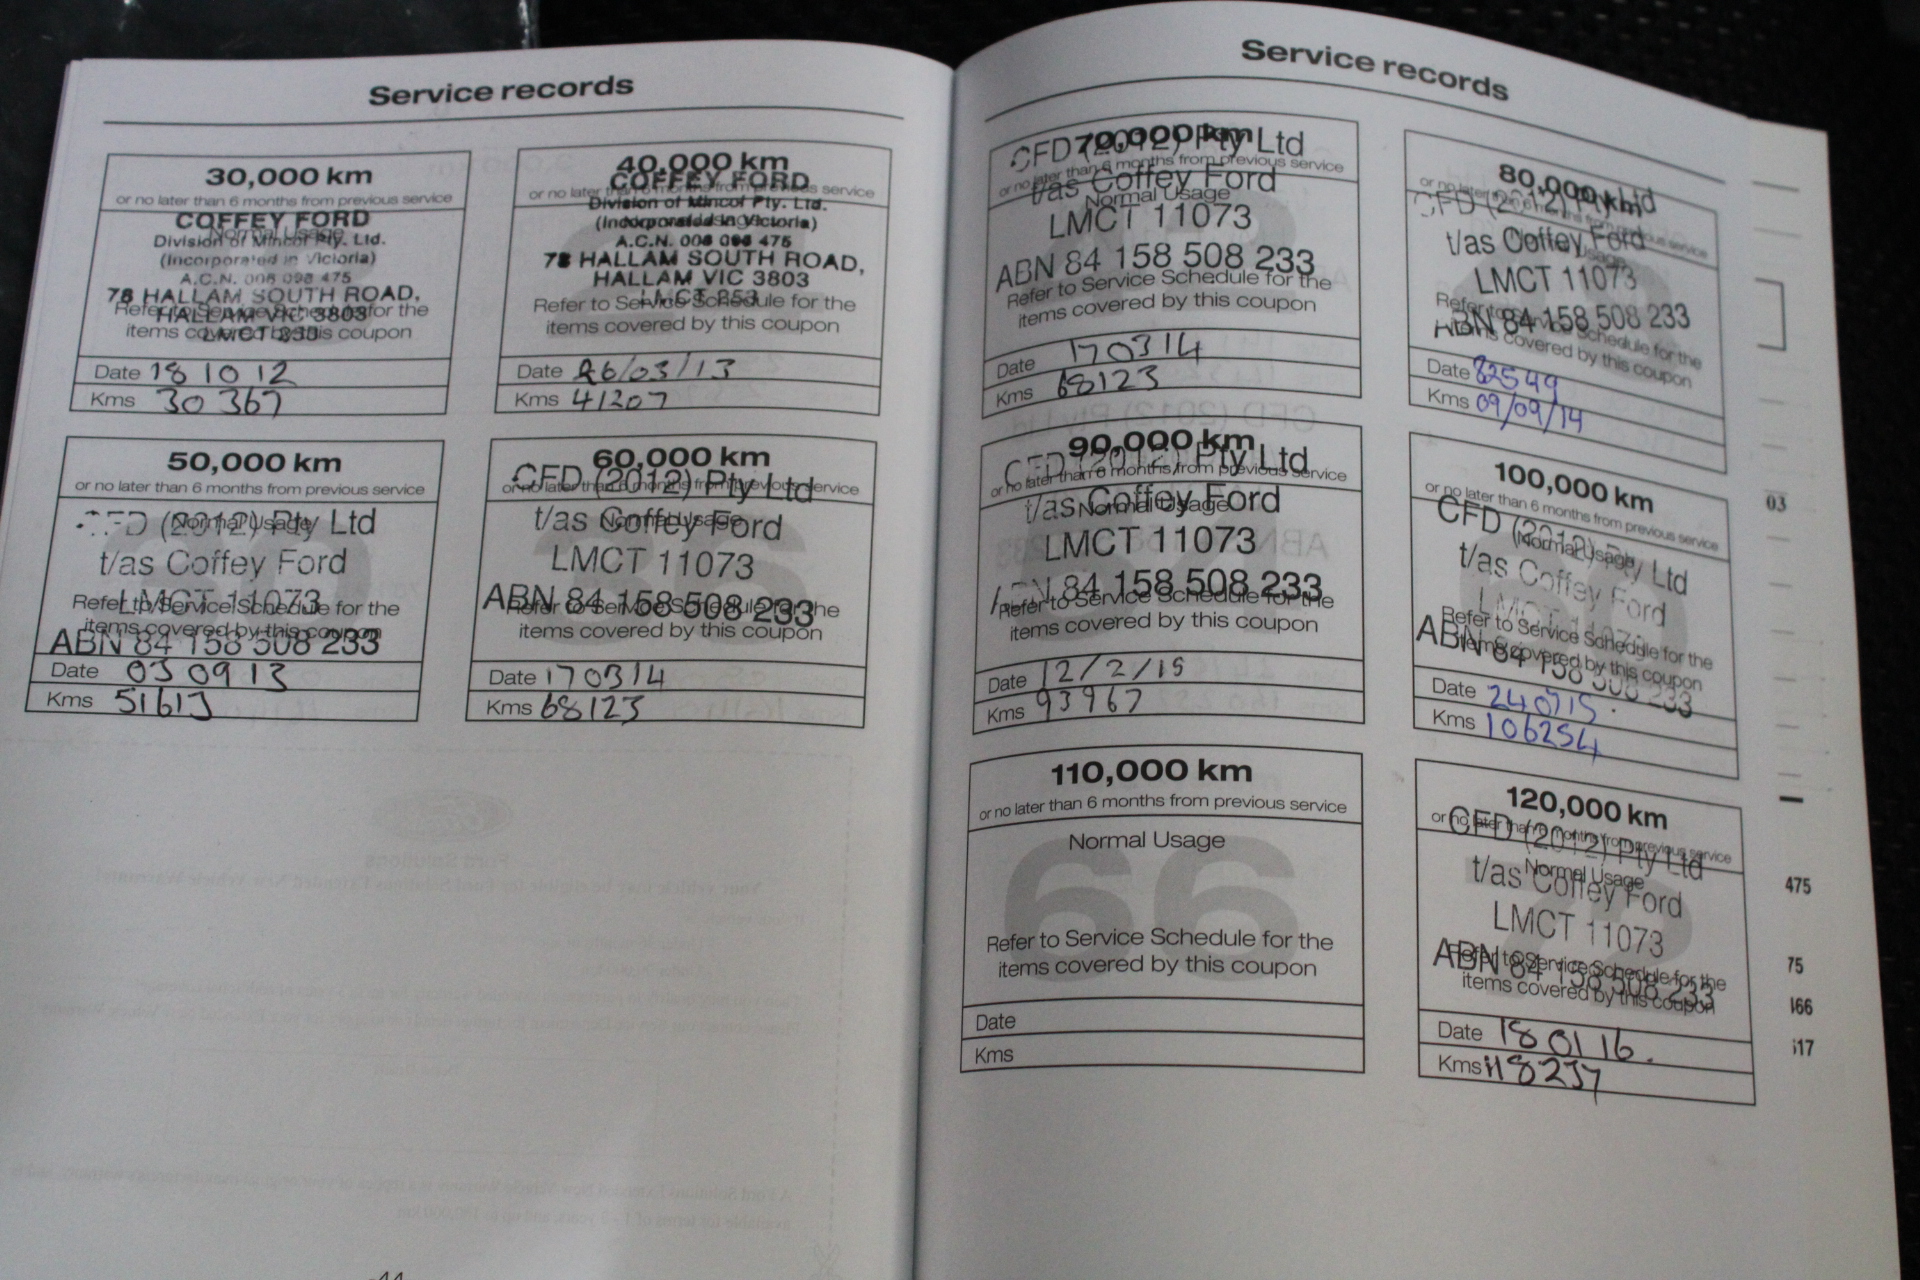 Service records
30,000 km
or no later than 6 months from previous service
COFFEY FORD
Normal Usage
Division of Mincor Pty. Ltd.
(Incorporated in Victoria)
A.C.N. 006 098 475
78 HALLAM SOUTH ROAD,
HALLAM VIC 3803
Refer to Service Schedule for the
items covered by this coupon
Date 18 10 12
Kms 30 367
40,000 km
or no later than 6 months from previous service
COFFEY FORD
Division of Mincor Pty. Ltd.
(Incorporated in Victoria)
A.C.N. 006 098 475
78 HALLAM SOUTH ROAD,
HALLAM VIC 3803
LMCT 253
Refer to Service Schedule for the
items covered by this coupon
Date 26/03/13
Kms 41207
50,000 km
or no later than 6 months from previous service
CFD (2012) Pty Ltd
Normal Usage
t/as Coffey Ford
LMCT 11073
Refer to Service Schedule for the
items covered by this coupon
ABN 84 158 508 233
Date 03 09 13
Kms
60,000 km
or no later than 6 months from previous service
CFD (2012) Pty Ltd
Normal Usage
t/as Coffey Ford
LMCT 11073
ABN 84 158 508 233
Refer to Service Schedule for the
items covered by this coupon
Date 170314
Kms 68123
Service records
70,000 km
CFD (2012) Pty Ltd
or no later than 6 months from previous service
t/as Coffey Ford
Normal Usage
LMCT 11073
ABN 84 158 508 233
Refer to Service Schedule for the
items covered by this coupon
Date 170314
Kms 68123
80,000 km
CFD (2012) Pty Ltd
or no later than 6 months from previous service
t/as Coffey Ford
Usage
LMCT 11073
ABN 84 158 508 233
Refer to Service Schedule for the
items covered by this coupon
Date 82549
Kms 09/09/14
90,000 km
CFD (2012) Pty Ltd
or no later than 6 months from previous service
t/as Coffey Ford
Normal Usage
LMCT 11073
ABN 84 158 508 233
Refer to Service Schedule for the
items covered by this coupon
Date 12/2/15
Kms 93967
100,000 km
or no later than 6 months from previous service
CFD (2012) Pty Ltd
Normal Usage
t/as Coffey Ford
LMCT 11073
Refer to Service Schedule for the
items covered by this coupon
ABN 84 158 508 233
Date 240715.
Kms 106254
110,000 km
or no later than 6 months from previous service
Normal Usage
66
Refer to Service Schedule for the
items covered by this coupon
Date
Kms
120,000 km
or no later than 6 months from previous service
CFD (2012) Pty Ltd
Normal Usage
t/as Coffey Ford
LMCT 11073
ABN 84 158 508 233
Refer to Service Schedule for the
items covered by this coupon
Date 18 01 16.
Kms 118237
03
475
75